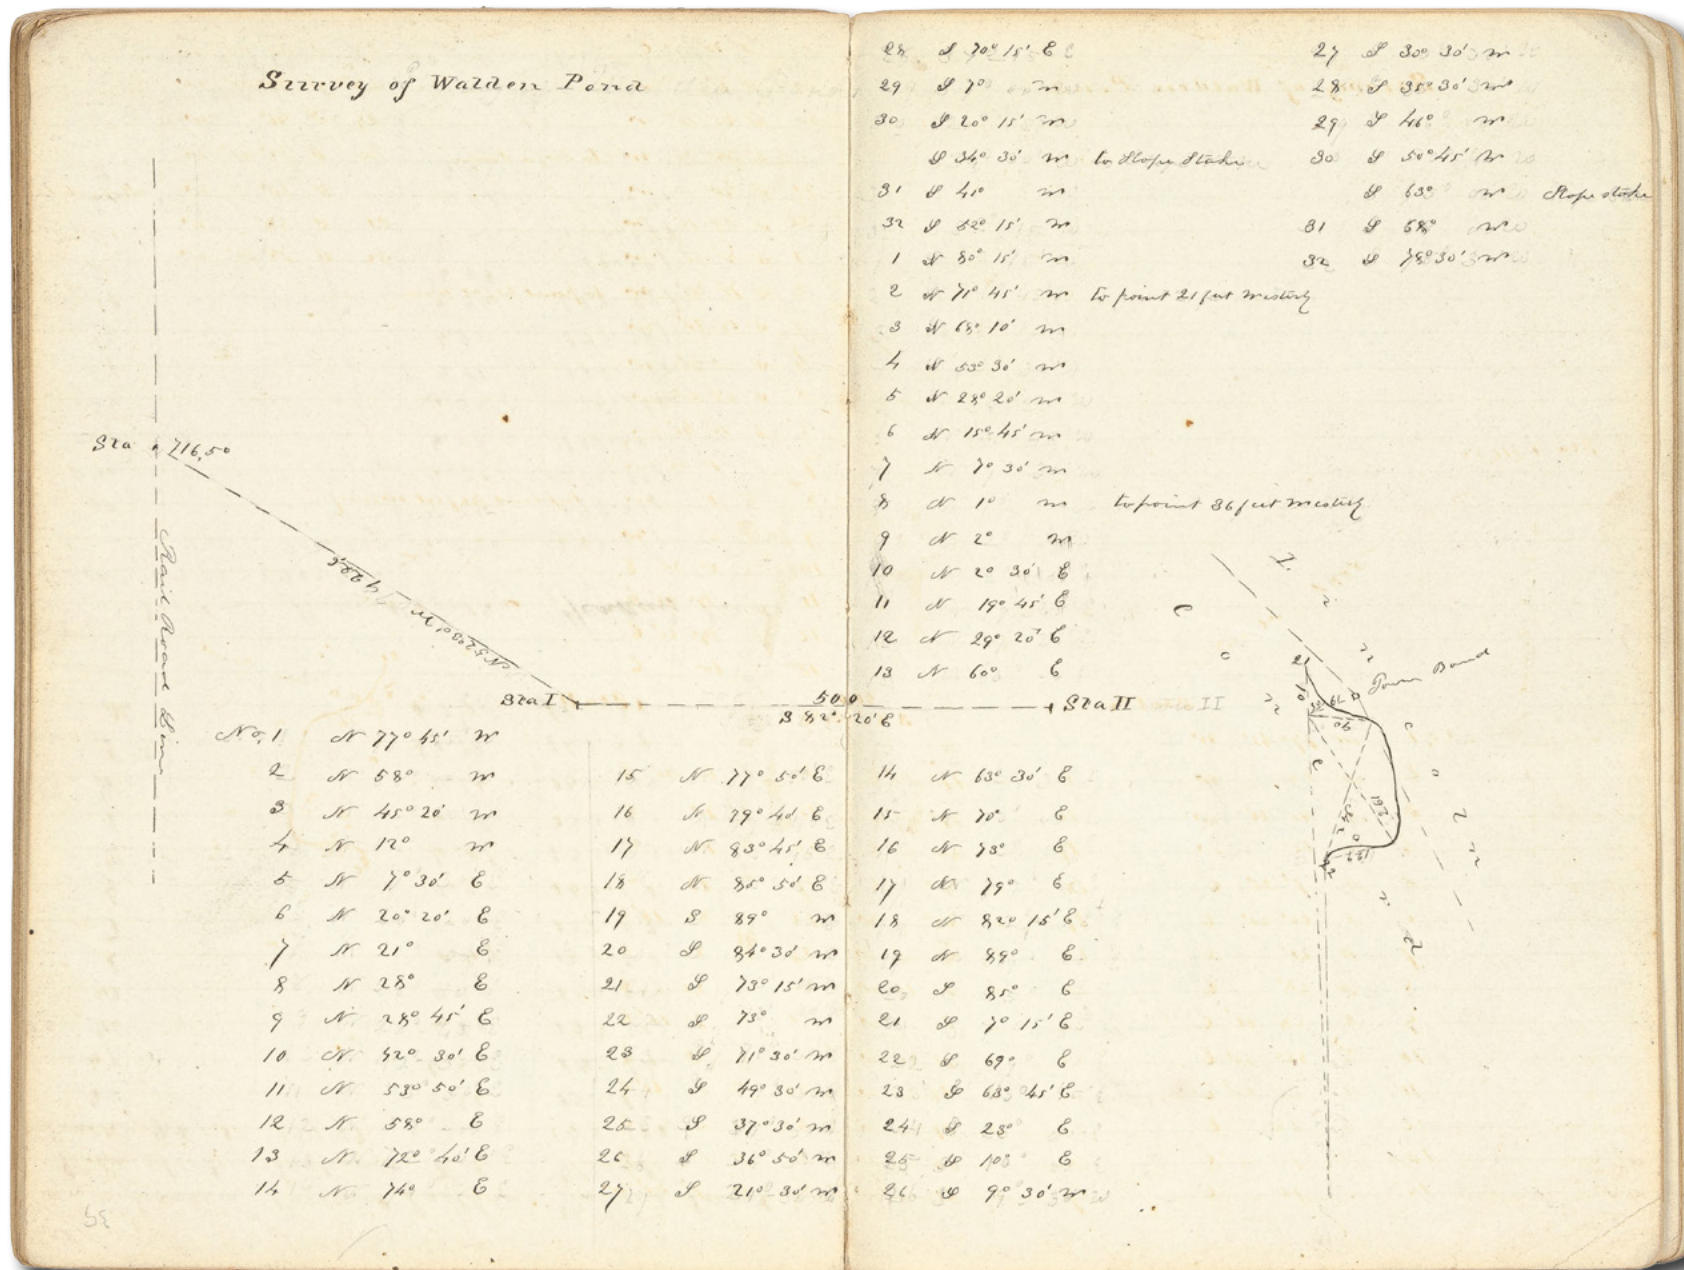 Survey of Walden Pond
Sta 716.50
Rail Road Line
Sta I
500
S 82° 20' E
Sta II
No. 1 N 77° 45' W
2 N 58° W
3 N 45° 20' W
4 N 12° W
5 N 7° 30' E
6 N 20° 20' E
7 N 21° E
8 N 28° E
9 N 28° 45' E
10 N 42° 30' E
11 N 53° 50' E
12 N 58° E
13 N 72° 40' E
14 N 74° E
15 N 77° 50' E
16 N 79° 40' E
17 N 83° 45' E
18 N 85° 50' E
19 S 89° W
20 S 84° 30' W
21 S 73° 15' W
22 S 73° W
23 S 71° 30' W
24 S 49° 30' W
25 S 37° 30' W
26 S 36° 50' W
27 S 21° 30' W
28 S 70° 15' E
29 S 7° W
30 S 20° 15' W
S 34° 30' W to Slope Stake
31 S 41° W
32 S 52° 15' W
1 N 80° 15' W
2 N 71° 45' W to point 21 feet Westerly
3 N 68° 10' W
4 N 53° 30' W
5 N 28° 20' W
6 N 15° 45' W
7 N 7° 30' W
8 N 1° W to point 36 feet Westerly
9 N 2° W
10 N 2° 30' E
11 N 19° 45' E
12 N 29° 20' E
13 N 60° E
14 N 63° 30' E
15 N 70° E
16 N 73° E
17 N 79° E
18 N 82° 15' E
19 N 89° E
20 S 85° E
21 S 7° 15' E
22 S 69° E
23 S 63° 45' E
24 S 23° E
25 S 10° E
26 S 9° 30' W
27 S 30° 30' W
28 S 35° 30' W
29 S 46° W
30 S 50° 45' W
S 63° W Slope stake
31 S 68° W
32 S 78° 30' W
Town Bound